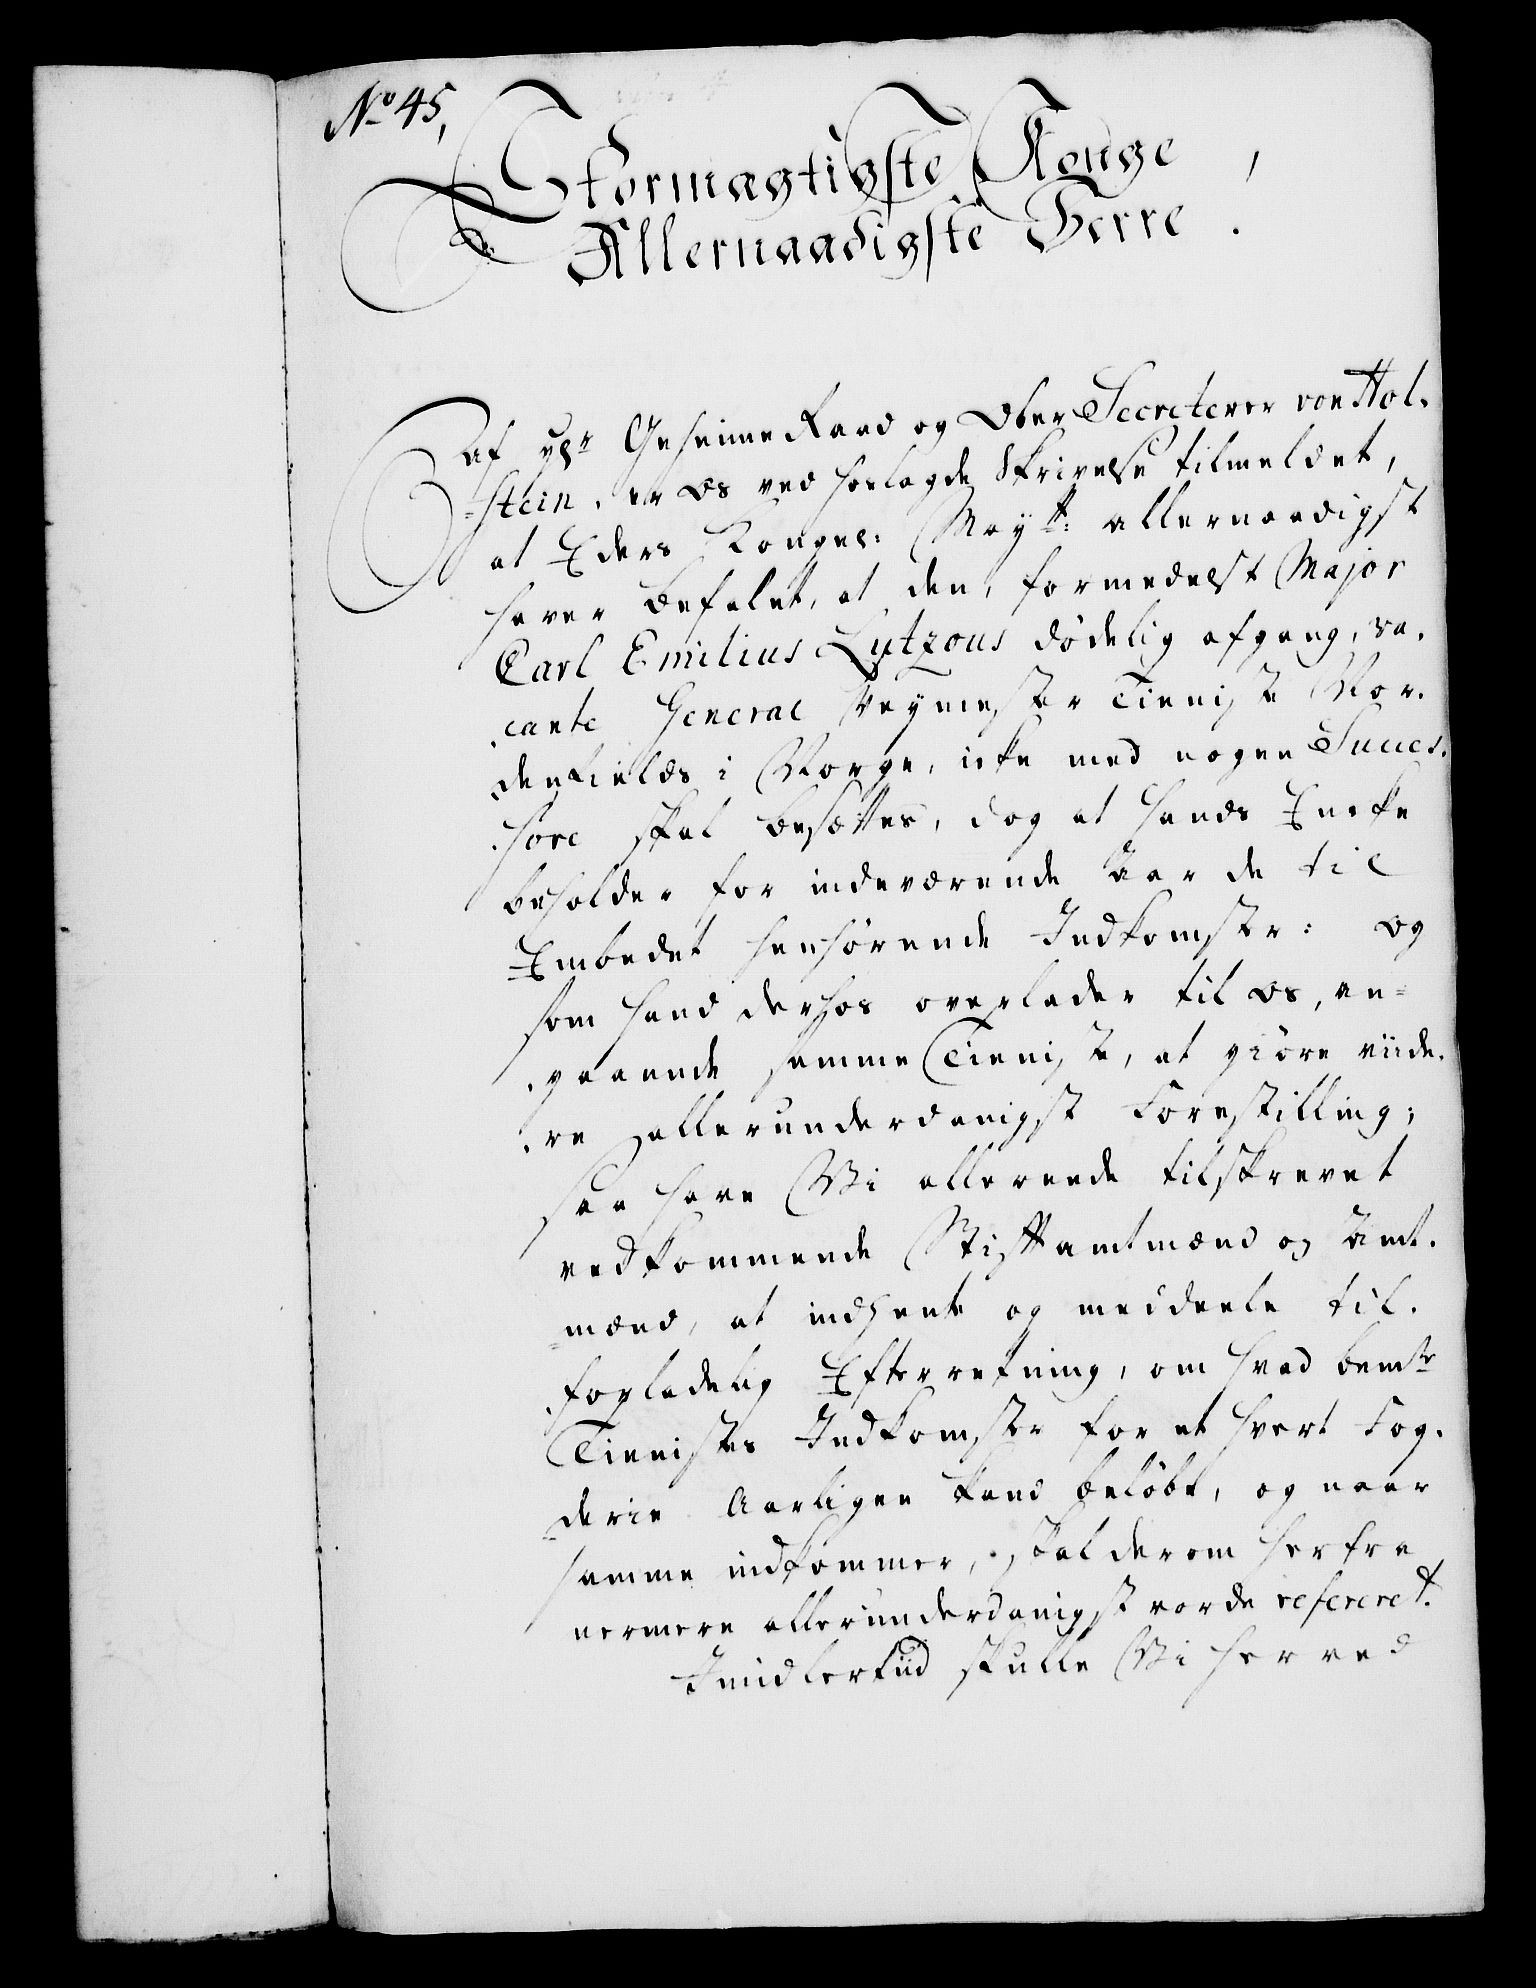 No 45,
Stormægtigste Konge,
Allernaadigste Herre.
af hr Geheime Raad og Ober Secreterer von Hol-
stein, er os ved hoslagde Skrivelse tilmeldet,
at Eders Kongel: Mayt: allernaadigst
haver befalet, at den, formedelst Major
Carl Emilius Lutzous dødelig afgang, va-
cante General Veymester Tieniste Nor-
denfields i Norge, icke med nogen Succes-
sore skal besættes, dog at hands Encke
beholder for indeværende Aar de til
Embedet henhørende Indkomster: og
som hand derhos overlader til os, an-
gaaende samme Tieniste, at giøre viide-
re allerunderdanigst Forestilling;
saa have Vi allereede tilskrevet
vedkommende Stiftamtmænd og Amt-
mænd, at indhente og meddeele til-
forladelig Efterretning, om hvad bemte
Tienistes Indkomster for et hvert Fog-
derie Aarligen kand beløbe, og naar
samme indkommer, skal derom herfra
nermere allerunderdanigst vorde refereret.
Imidlertiid skulle Vi herved